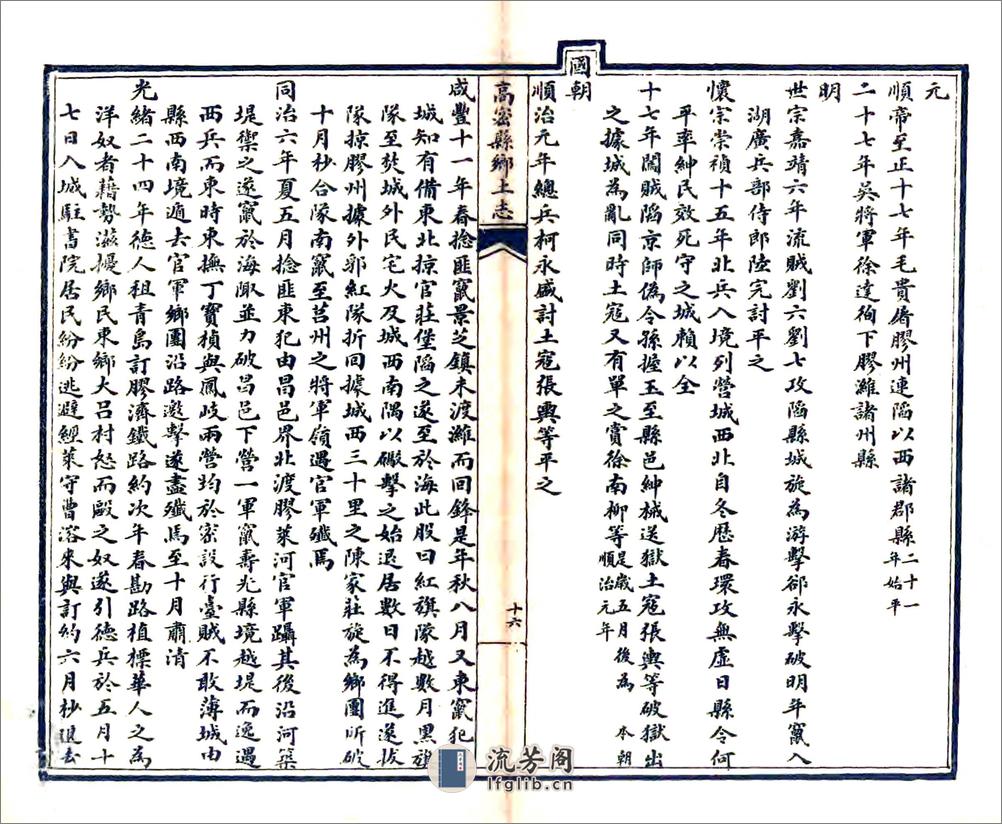 元
順帝至正十七年毛貴屠膠州連陷以西諸郡縣二十一年始平
二十七年吳將軍徐達徇下膠濰諸州縣
明
世宗嘉靖六年流賊劉六劉七攻陷縣城旋為游擊郤永擊破明年竄入
湖廣兵部侍郎陸完討平之
懷宗崇禎十五年北兵入境列營城西北自冬歷春環攻無虛日縣令何
平率紳民效死守之城賴以全
十七年闖賊陷京師偽令孫握玉至縣邑紳械送獄土寇張輿等破獄出
之據城為亂同時土寇又有單之賞徐南柳等是歲五月後為本朝順治元年
國朝
順治元年總兵柯永盛討土寇張輿等平之
高密縣鄉土志
十六
咸豐十一年春捻匪竄景芝鎮未渡濰而回鋒是年秋八月又東竄犯
城知有備東北掠官莊堡陷之遂至於海此股曰紅旗隊越數月黑旗
隊至焚城外民宅火及城西南隅以礮擊之始退居數日不得進遂拔
隊掠膠州據外郛紅隊折回據城西三十里之陳家莊旋為鄉團所破
十月杪合隊南竄至莒州之將軍嶺遇官軍殲焉
同治六年夏五月捻匪東犯由昌邑界北渡膠萊河官軍躡其後沿河築
堤禦之遂竄於海陬並力破昌邑下營一軍竄壽光縣境越堤而逸遇
西兵而東時東撫丁寶楨與鳳岐兩營均於密設行臺賊不敢薄城由
縣西南境遁去官軍鄉團沿路邀擊遂盡殲焉至十月肅清
光緒二十四年德人租青島訂膠濟鐵路約次年春勘路植標華人之為
洋奴者藉勢滋擾鄉民東鄉大呂村怒而毆之奴遂引德兵於五月十
七日入城駐書院居民紛紛逃避經萊守曹溶來與訂約六月杪退去
流芳阁
lfglib.cn